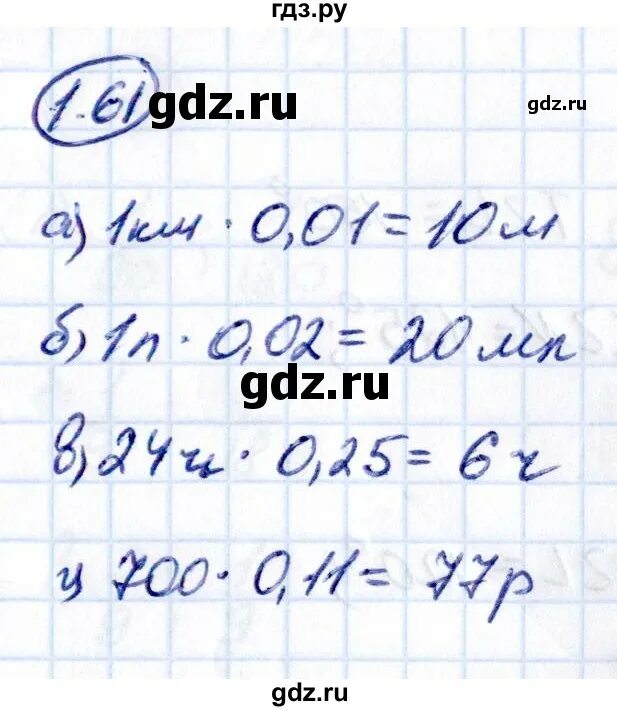 гдз.ру
1.61 gdz.ru
gdz.ru
а) 1км · 0,01 = 10 м
б) 1л · 0,02 = 20 мл
gdz.ru
в) 24ч · 0,25 = 6 ч
г) 700 · 0,11 = 77р
gdz.ru